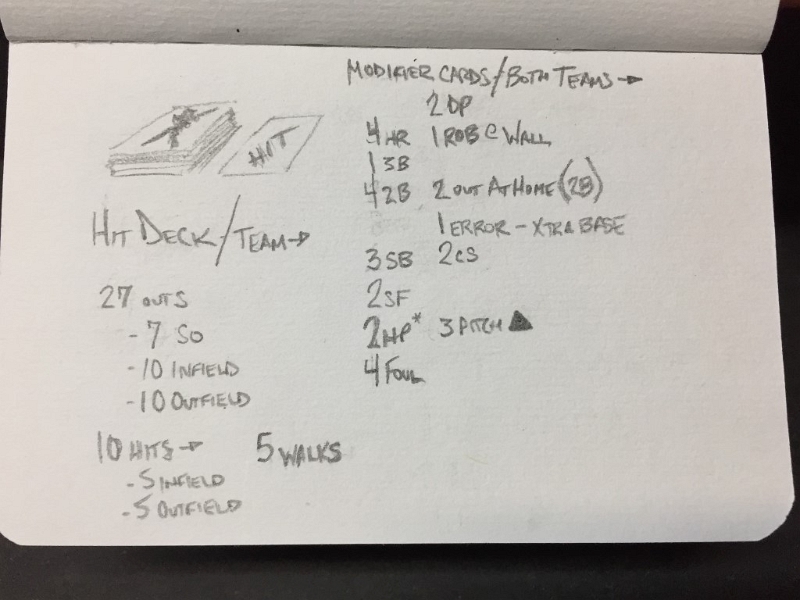 MODIFIER CARDS/BOTH TEAMS→
2 DP
4 HR 1 ROB @ WALL
1 3B
4 2B 2 OUT AT HOME (2B)
1 ERROR - XTRA BASE
3 SB 2 CS
2 SF
2 HP* 3 PITCH ▲
4 FOUL
HIT
HIT DECK/TEAM→
27 OUTS
- 7 SO
- 10 INFIELD
- 10 OUTFIELD
10 HITS→ 5 WALKS
- 5 INFIELD
- 5 OUTFIELD